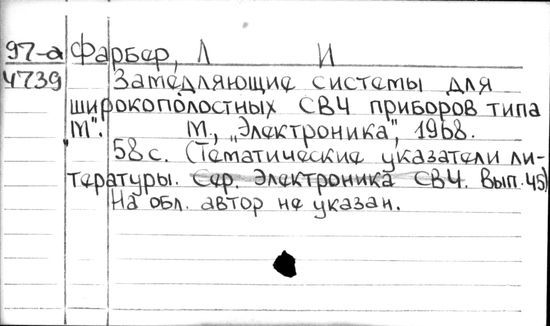 97-а Фарбер, Л И
4739 Замедляющие системы для
широкополостных СВЧ приборов типа
"М". М., „Электроника", 1968.
58 с. (Тематические указатели ли-
тературы. Сер. Электроника СВЧ. Вып. 45)
На обл. автор не указан.